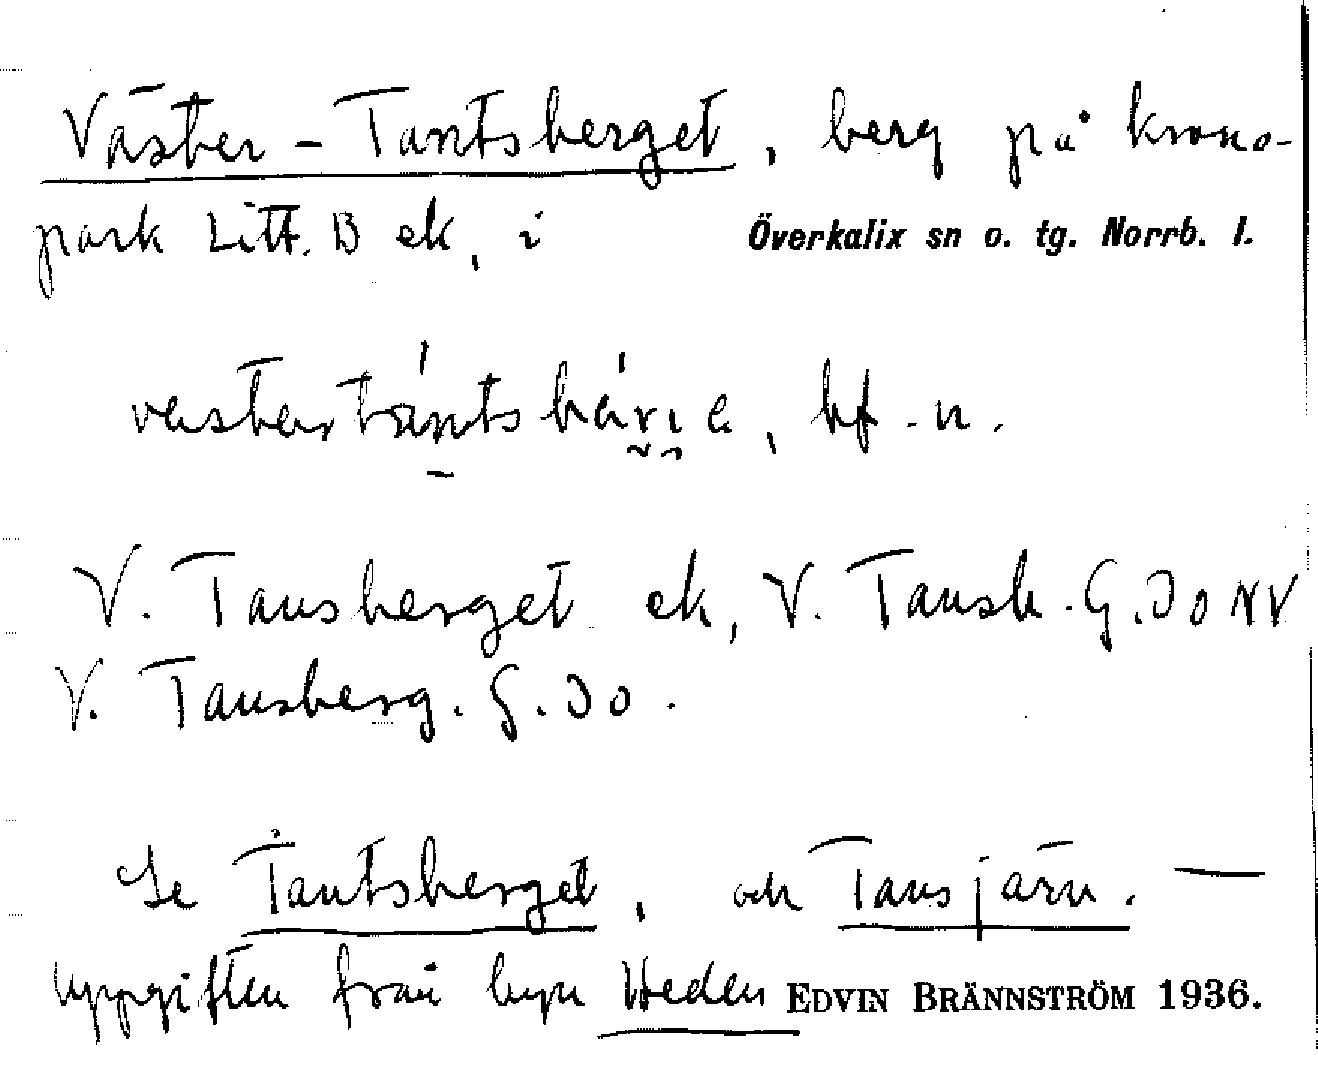 Väster-Tantsberget, berg på krono-
park Litt. B ek, i Överkalix sn o. tg. Norrb. l.
bf. n.
V. Tansberget ek, V. Tansb. G. 30 NV
V. Tansberg. G. 30.
Se Tantsberget, och Tansjärn. —
uppgiften från byn Heden EDVIN BRÄNNSTRÖM 1936.